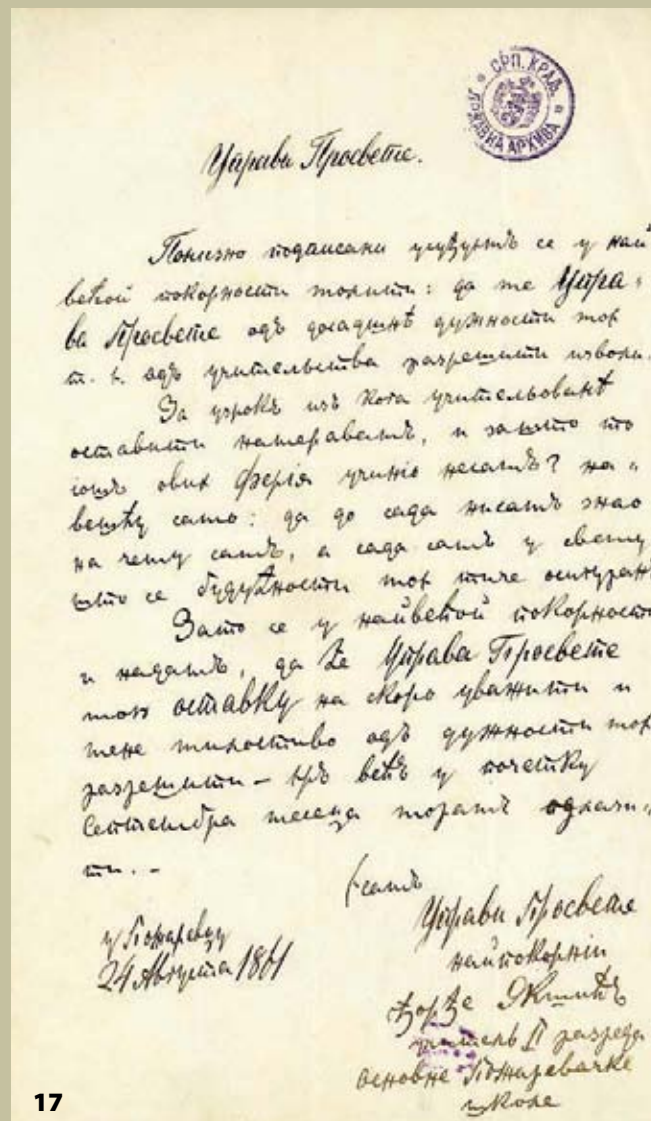 СРП. КРАЉ. ДРЖАВНА АРХИВА
Управи Просвете.
Понизно подписани усуђуємъ се у най
већой покорности молити: да ме Упра„
ва Просвете одъ дужности моє
т. є. одъ учительства разрешити изволи
За узрокъ изъ кога учительованѣ
оставити намеравамъ, и зашто то
іошъ ових Ферія учиніо несамъ? на„
вешћу само: да до сада нисамъ знао
на чему самъ, а сада самъ у свему
што се будућности моє тиче осигуранъ
Зато се у найвећой покорности
и надамъ, да ће Управа Просвете
мою оставку на скоро уважити и
мене милостиво одъ дужности моє
разрешити – єръ већъ у почетку
Септембра месеца морамъ
ти. –
самъ
Управи Просвете
найпокорніи
Ђорђе Якшићъ
учитель II разреда
основне Пожаревачке
школе
у Пожаревцу
24 Августа 1861
17